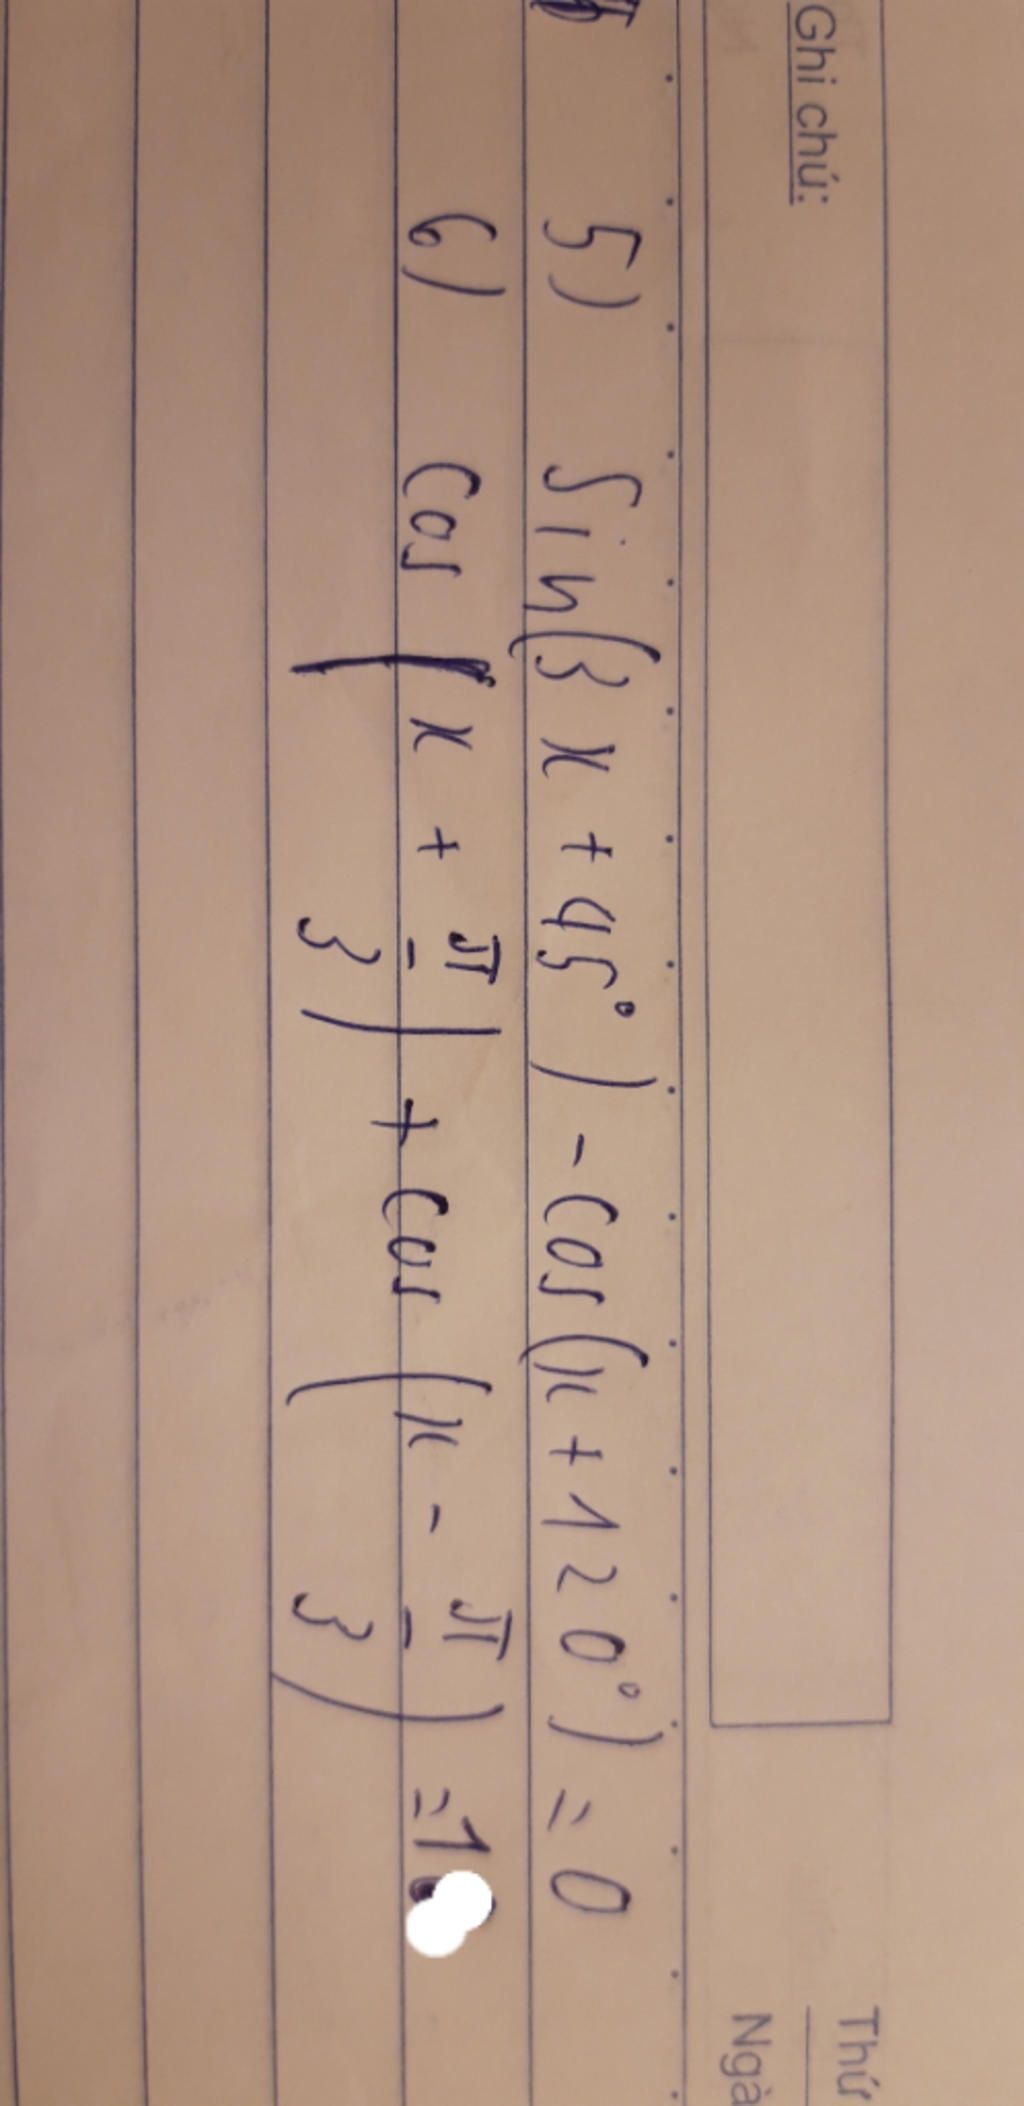 Ghi chú:
Thứ
Ngà
5) Sin(3x + 45°) - Cos(x + 120°) = 0
6) Cos (x + π/3) + Cos (x - π/3) = 1